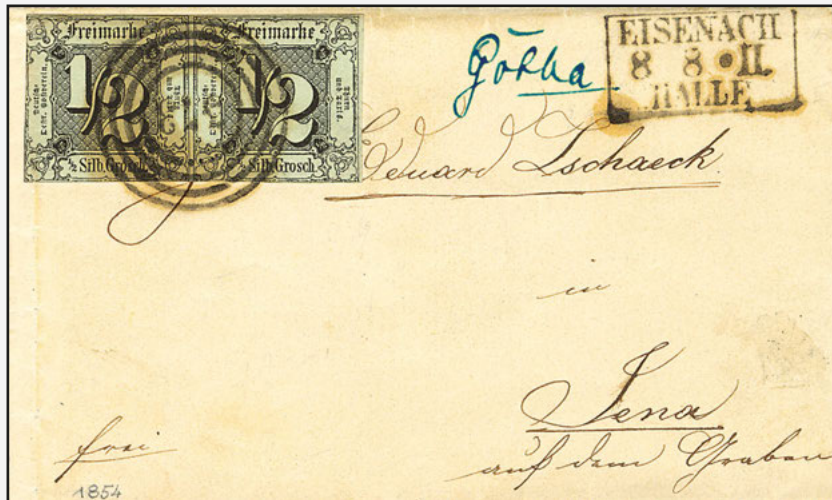 Freimarke Freimarke
1/2 1/2
½ Silb.Grosch. ½ Silb.Grosch.
Gotha
EISENACH
8 8 II.
HALLE
Eduard Zschaeck
in
Jena
auf dem Graben
frei
1854